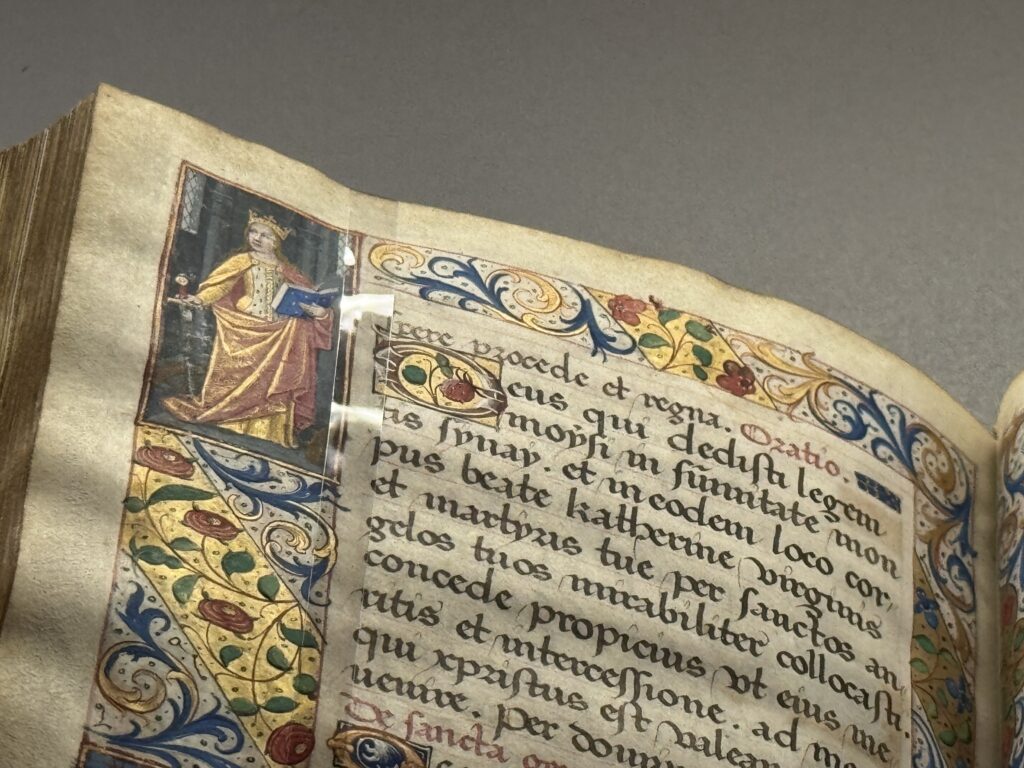 pere procede et regna. Oratio.
Deus qui dedisti legem
moysi in su̅mitate mon
tis synay. et in eodem loco cor,
pus beate katherine virginis
et martyris tue per sanctos an,
gelos tuos mirabiliter collocasti.
concede propicius vt eius me
ritis et intercessione. ad mo
qui xpristus est valea
uenire. Per domin
De sancta